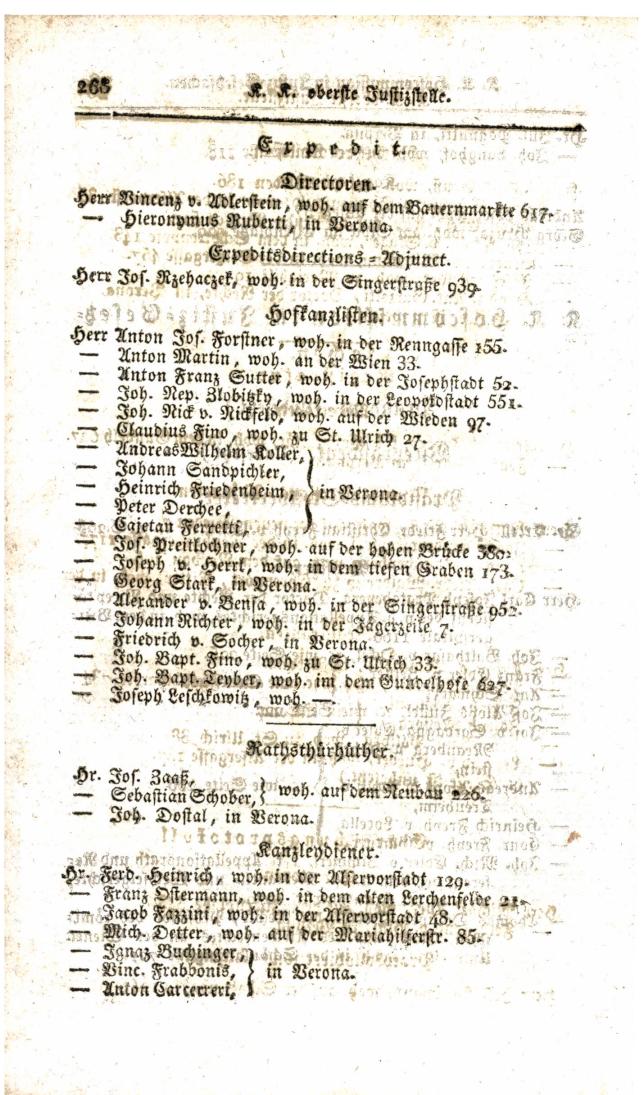 268
K. K. oberste Justizstelle.
Expedit.
Directoren.
Herr Vincenz v. Adlerstein, woh. auf dem Bauernmarkte 617.
— Hieronymus Ruberti, in Verona.
Expeditsdirections-Adjunct.
Herr Jos. Rzehaczek, woh. in der Singerstraße 939.
Hofkanzlisten.
Herr Anton Jos. Forstner, woh. in der Renngasse 155.
— Anton Martin, woh. an der Wien 33.
— Anton Franz Sutter, woh. in der Josephstadt 52.
— Joh. Nep. Zlobitzky, woh. in der Leopoldstadt 551.
— Joh. Nick v. Nickfeld, woh. auf der Wieden 97.
— Claudius Fino, woh. zu St. Ulrich 27.
— Andreas Wilhelm Koller,
— Johann Sandpichler,
— Heinrich Friedenheim, } in Verona.
— Peter Derchee,
— Cajetan Ferretti,
— Jos. Preitlochner, woh. auf der hohen Brücke 380.
— Joseph v. Herrl, woh. in dem tiefen Graben 173.
— Georg Stark, in Verona.
— Alexander v. Bensa, woh. in der Singerstraße 952.
— Johann Richter, woh. in der Jägerzeile 7.
— Friedrich v. Socher, in Verona.
— Joh. Bapt. Fino, woh. zu St. Ulrich 33.
— Joh. Bapt. Teyber, woh. im dem Gundelhofe 627.
— Joseph Leschkowitz, woh. —.
Rathsthürhüther.
Hr. Jos. Zaaß,
— Sebastian Schober, } woh. auf dem Neubau 226.
— Joh. Dostal, in Verona.
Kanzleydiener.
Hr. Ferd. Heinrich, woh. in der Alservorstadt 129.
— Franz Ostermann, woh. in dem alten Lerchenfelde 21.
— Jacob Fazzini, woh. in der Alservorstadt 48.
— Mich. Detter, woh. auf der Mariahilferstr. 85.
— Ignaz Buchinger,
— Vinc. Frabbonis, } in Verona.
— Anton Carcerreri,